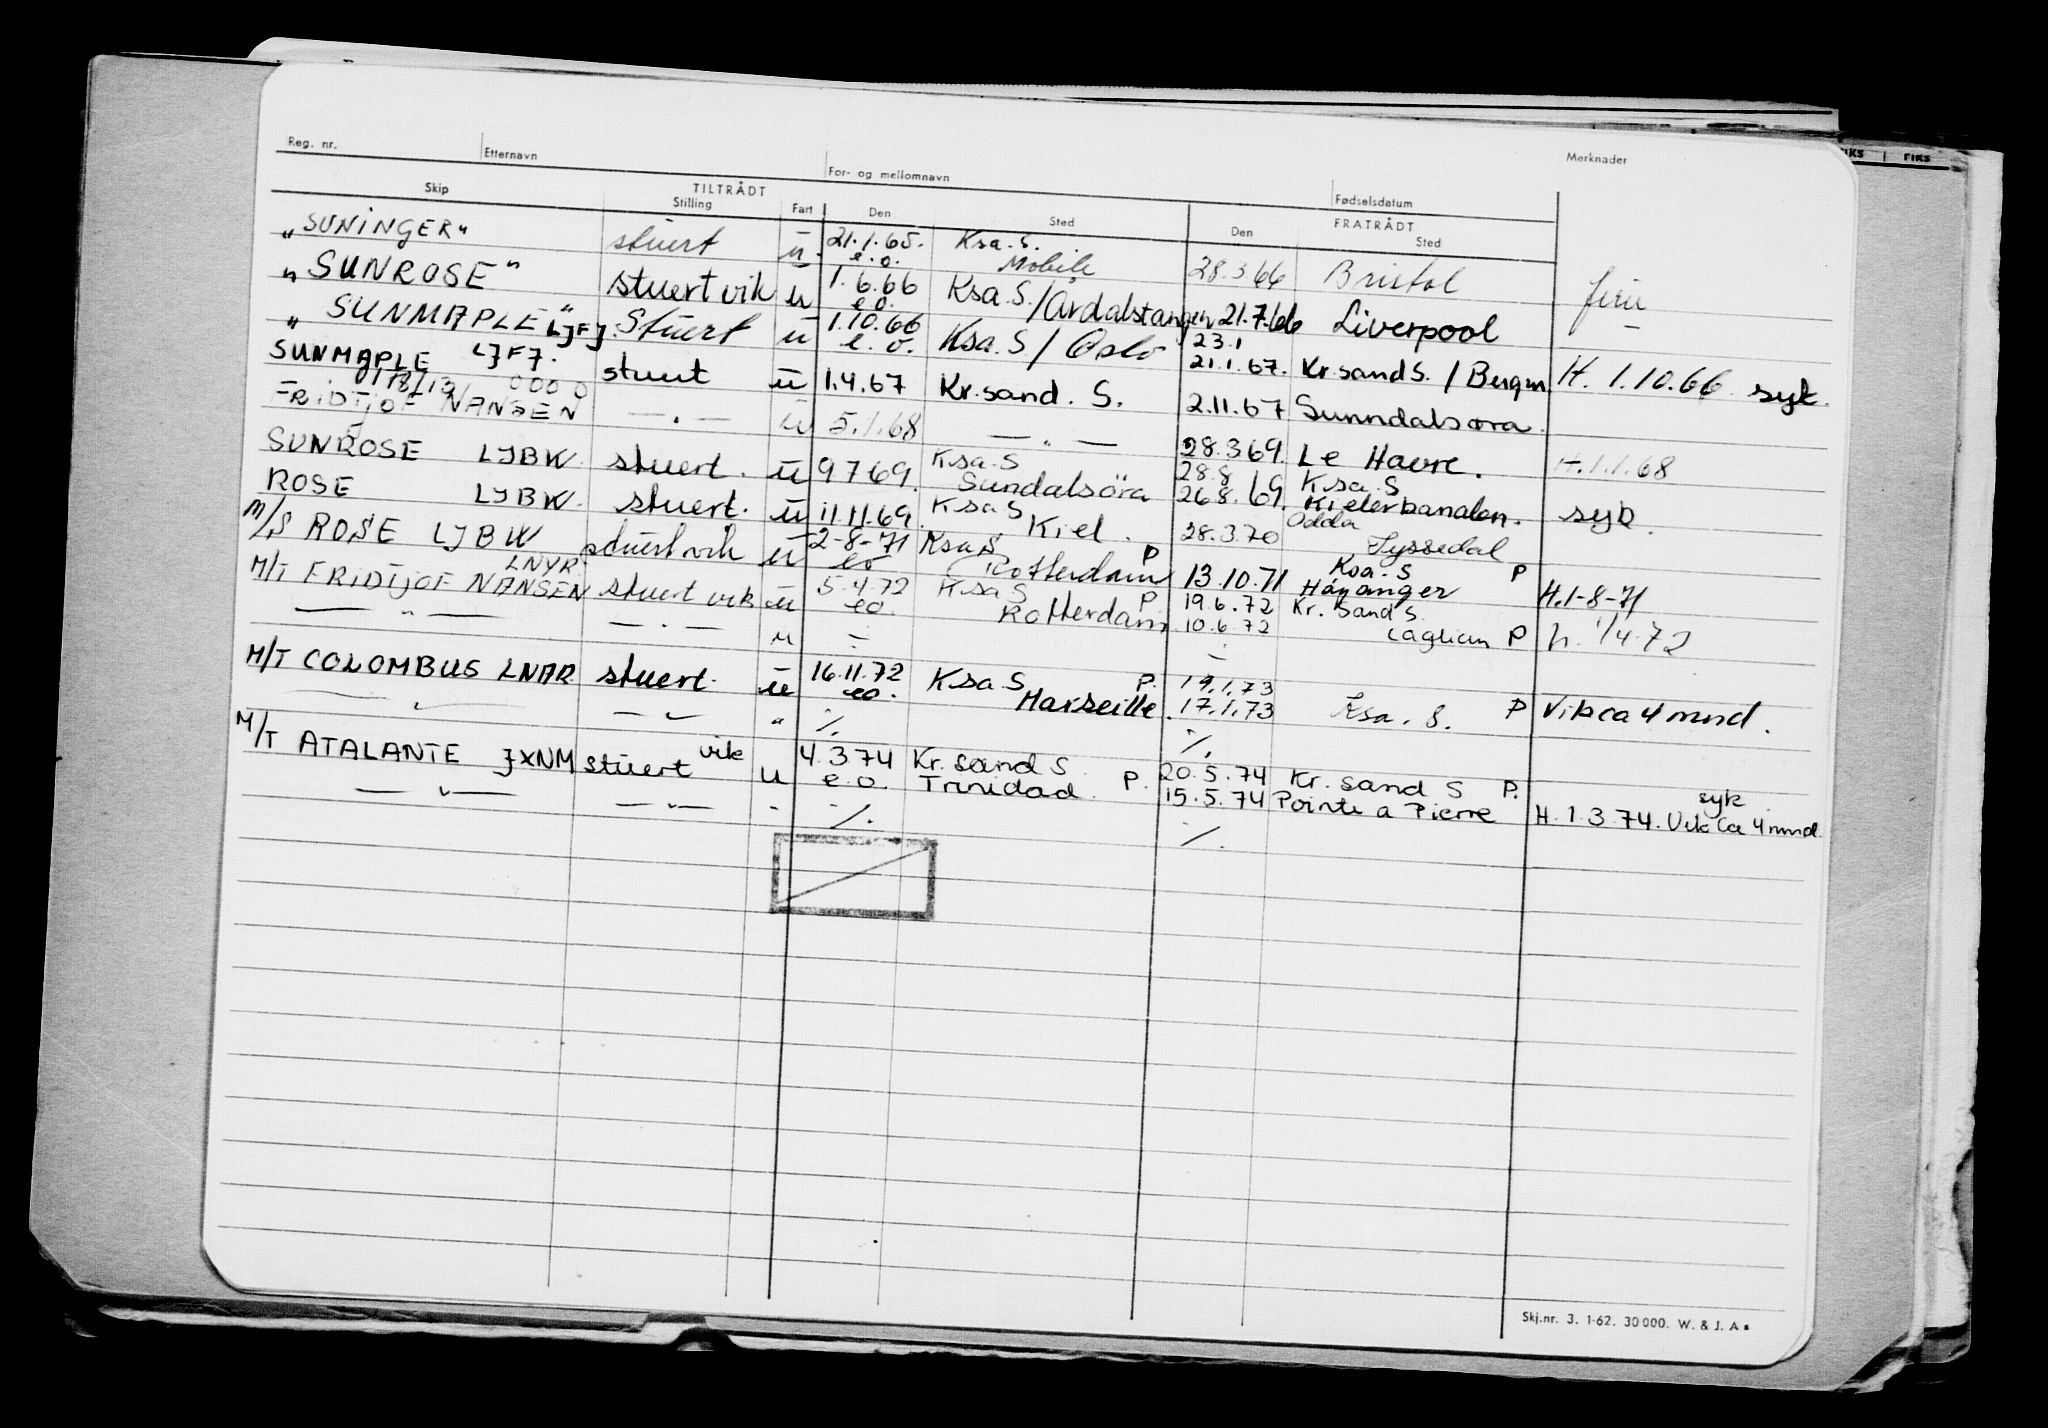 Reg. nr. Etternavn For- og mellomnavn Fødselsdatum Merknader
Skip TILTRÅDT FRATRÅDT
Stilling Fart Den Sted Den Sted
"SUNINGER" stuert u 21.1.65. e.o. Ksa. S. Mobile 28.3.66 Bristol
"SUNROSE" stuert vik u 1.6.66 e.o. Ksa. S./Årdalstangen 21.7.66 Liverpool
"SUNMAPLE" LJFJ. Stuert u 1.10.66 e.o. Ksa. S / Oslo 23.1 21.1.67. Kr.sand S. / Bergen H. 1.10.66 syk.
SUNMAPLE LJFJ. stuert u 1.4.67 Kr.sand. S. 2.11.67 Sunndalsøra.
FRIDTJOF NANSEN — . — u 5.1.68 — " — 28.3.69 Le Havre. H.1.1.68
SUNROSE LJBW. stuert. u 9 7 69. Ksa. S Sundalsöra 28.8 26.8.69 Ksa. S Kielerkanalen. syk.
ROSE LJBW. stuert. u 11.11.69. Ksa S Kiel. 28.3.70 Odda Tyssedal
M/S ROSE LJBW stuert vik u 2-8-71 eo Ksa S Rotterdam P 13.10.71 Ksa. S Høyanger P H.1-8-71
M/T FRIDTJOF NANSEN LNYR stuert vik u 5.4.72 eo. Ksa S Rotterdam P. 19.6.72 10.6.72 Kr. sand S. Cagliari P h. 1/4-72
— " — — . — u
M/T COLOMBUS LNAR stuert. u 16.11.72 eo. Ksa S Marseille. P. 19.1.73 17.1.73 Ksa. S. P Vik ca 4 mnd.
— " — — " — " ./. ./.
M/T ATALANTE JXNM stuert vik u 4.3.74 e.o. Kr. sand S. Trinidad. P. 20.5.74 15.5.74 Kr. sand S P. Pointe a Pierre syk. H. 1.3.74. Vik Ca 4 mnd.
— " — — " — " ./. ./.
Skj.nr. 3. 1-62. 30 000. W. & J. A